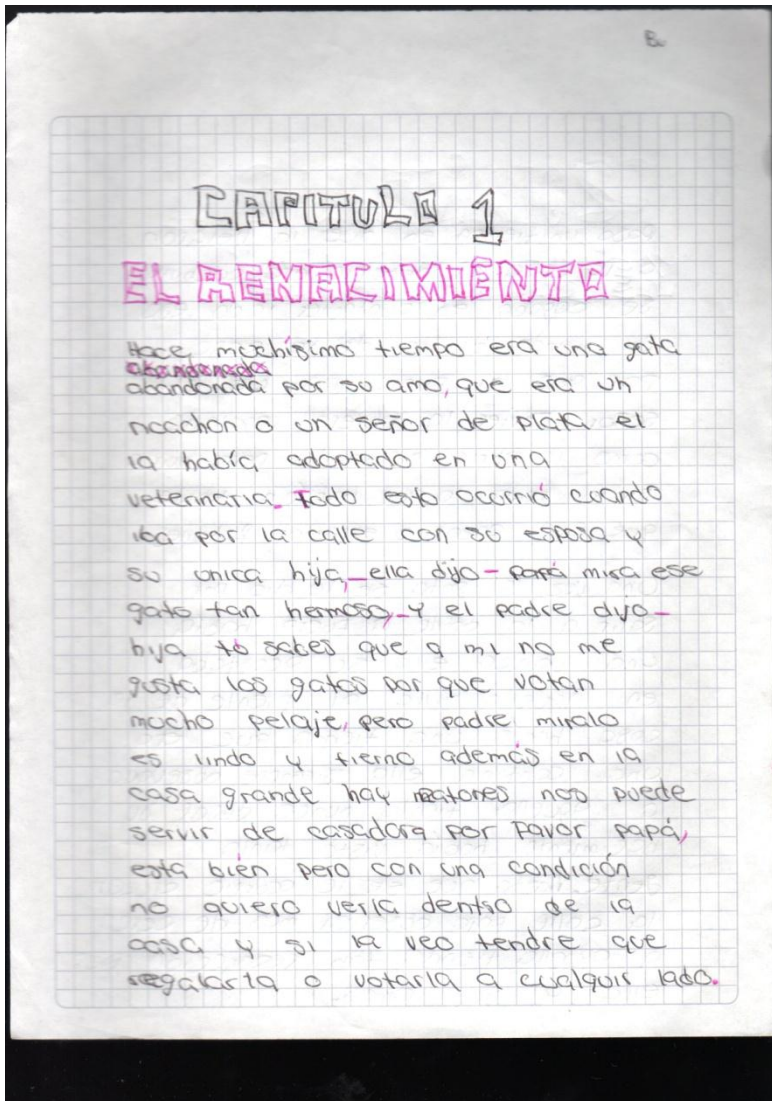 CAPITULO 1
EL RENACIMIENTO
Hace muchísimo tiempo era una gata
abandonada
abandonada por su amo, que era un
ricachon o un señor de plata el
la había adoptado en una
veterinaria. Todo esto ocurrió cuando
iba por la calle con su esposa y
su unica hija, -ella dijo- papá mira ese
gato tan hermoso,-y el padre dijo-
hija tú sabes que a mi no me
gusta los gatos por que votan
mucho pelaje, pero padre miralo
es lindo y tierno además en la
casa grande hay ratones nos puede
servir de casadora por favor papá,
esta bién pero con una condición
no quiero verla dentro de la
casa y si la veo tendre que
regalarla o votarla a cualquir lado.